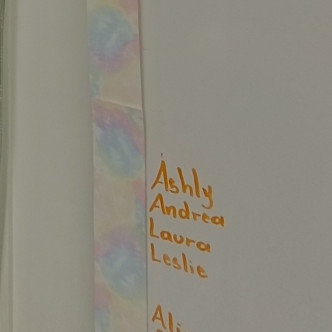 Ashly
Andrea
Laura
Leslie
Ali